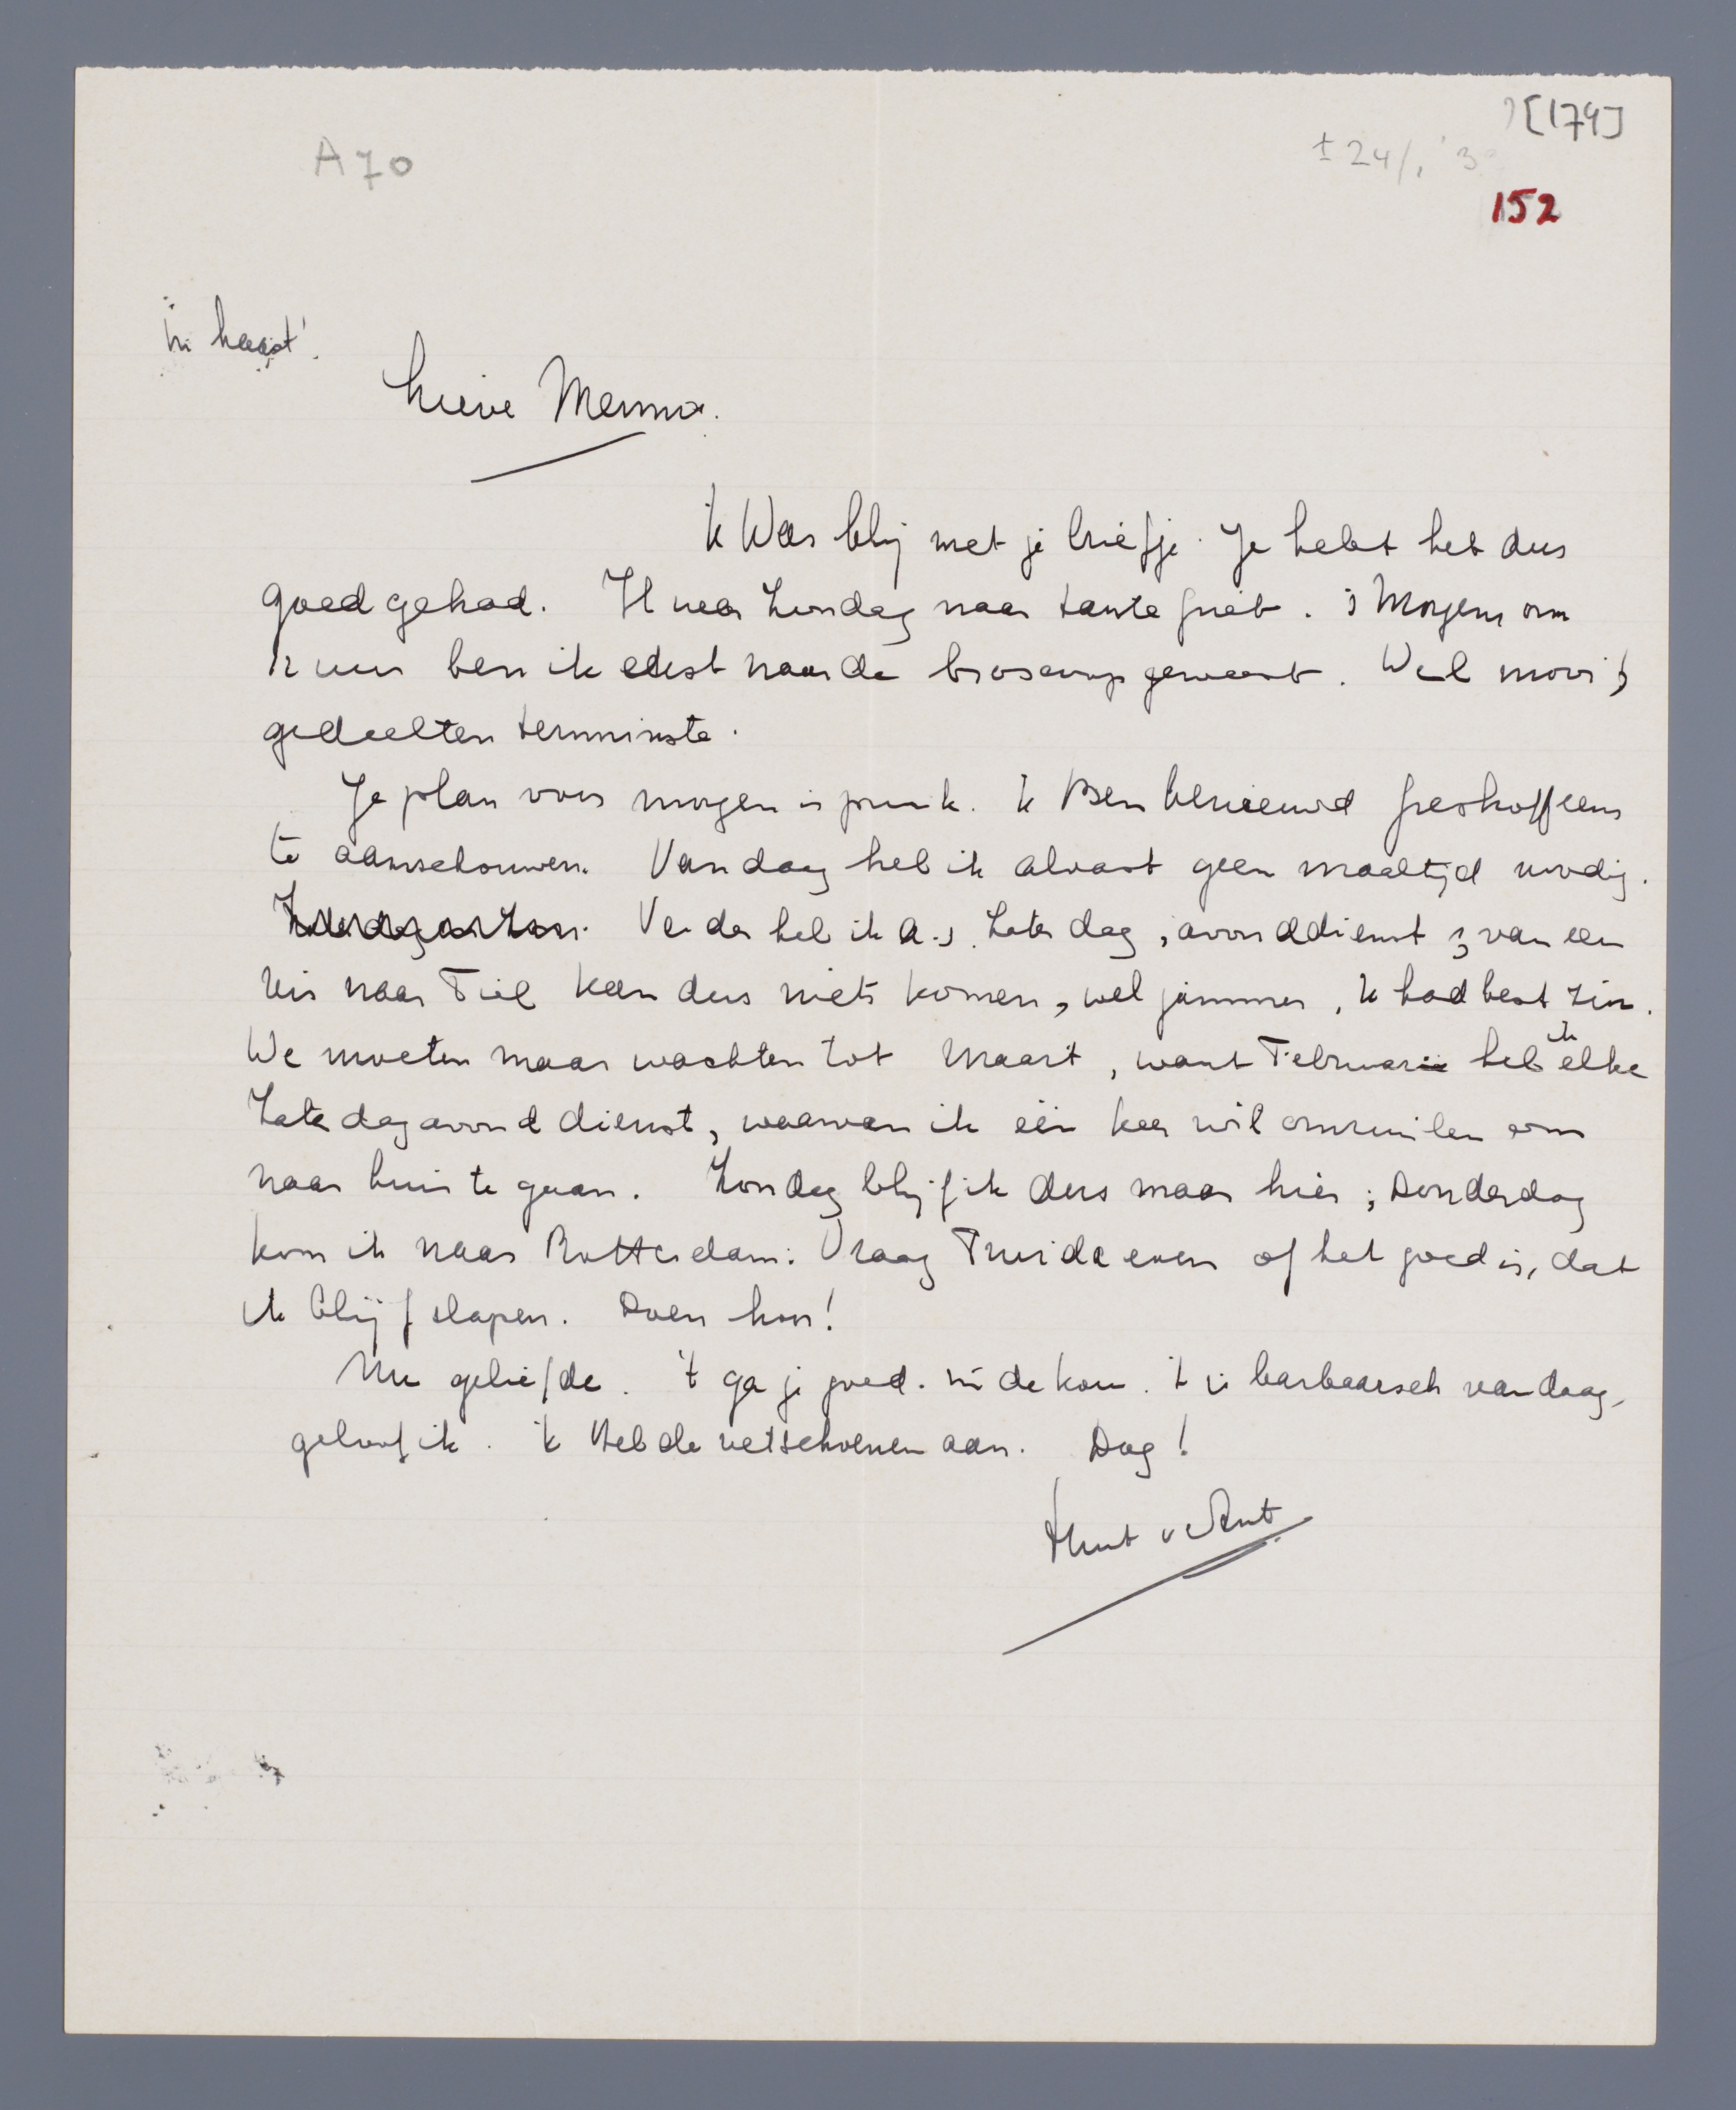 [174]
A70
± 24/1 '3
152
in haast!
Lieve Menno.
ik Was blij met je briefje. Je hebt het dus
goed gehad. Ik was Zondag naar tante . 's Morgens om
12 uur ben ik eerst naar de geweest. Wel mooi;
gedeelten tenminste.
Je plan voor morgen is prima. ik Ben benieuwd Greshoff eens
te aanschouwen. Vandaag heb ik alvast geen maaltijd noodig.
Verder heb ik a.s. Zaterdag avonddienst; van een
reis naar Tiel kan dus niets komen, wel jammer, ik had best zin.
We moeten maar wachten tot Maart, want Februari heb ik elke
Zaterdagavond dienst, waarvan ik één keer wil omruilen om
naar huis te gaan. Zondag blijf ik dus maar hier; Donderdag
kom ik naar Rotterdam. Vraag Truida even of het goed is, dat
ik blijf slapen. Doen hoor!
Nu geliefde. 't ga je goed in de kou. 't is barbaarsch vandaag,
geloof ik. ik Heb de vetschoenen aan. Dag!
Ant